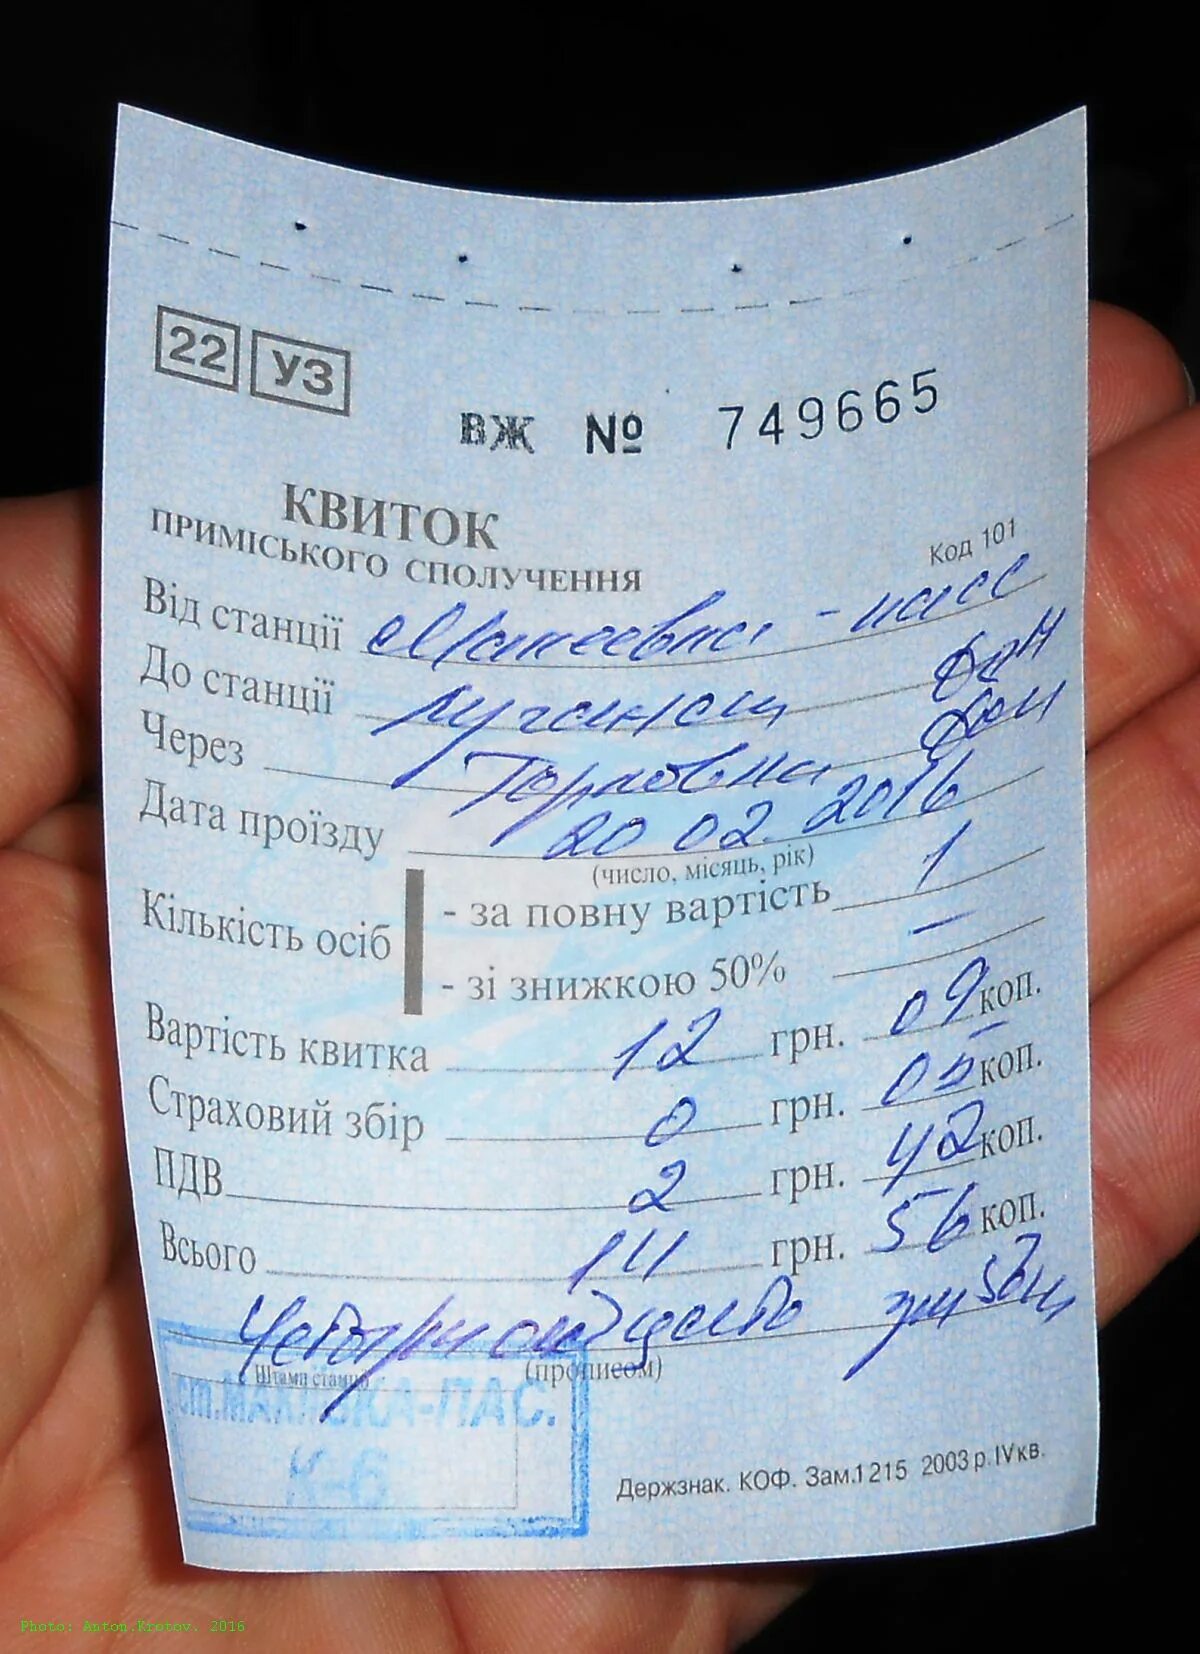 22 УЗ
ВЖ № 749665
КВИТОК
ПРИМІСЬКОГО СПОЛУЧЕННЯ
Код 101
Від станції Макеевка - пасс
До станції Луганск
Через Горловка
Дата проїзду 20 02. 2016
(число, місяць, рік)
Кількість осіб - за повну вартість 1
- зі знижкою 50% —
Вартість квитка 12 грн. 09 коп.
Страховий збір 0 грн. 05 коп.
ПДВ 2 грн. 42 коп.
Всього 14 грн. 56 коп.
Четырнадцать грн 56
Штамп станції (прописом)
ст. МАКІЇВКА-ПАС.
К-6
Держзнак. КОФ. Зам.1215 2003 р. IV кв.
Photo: Anton.Krotov. 2016